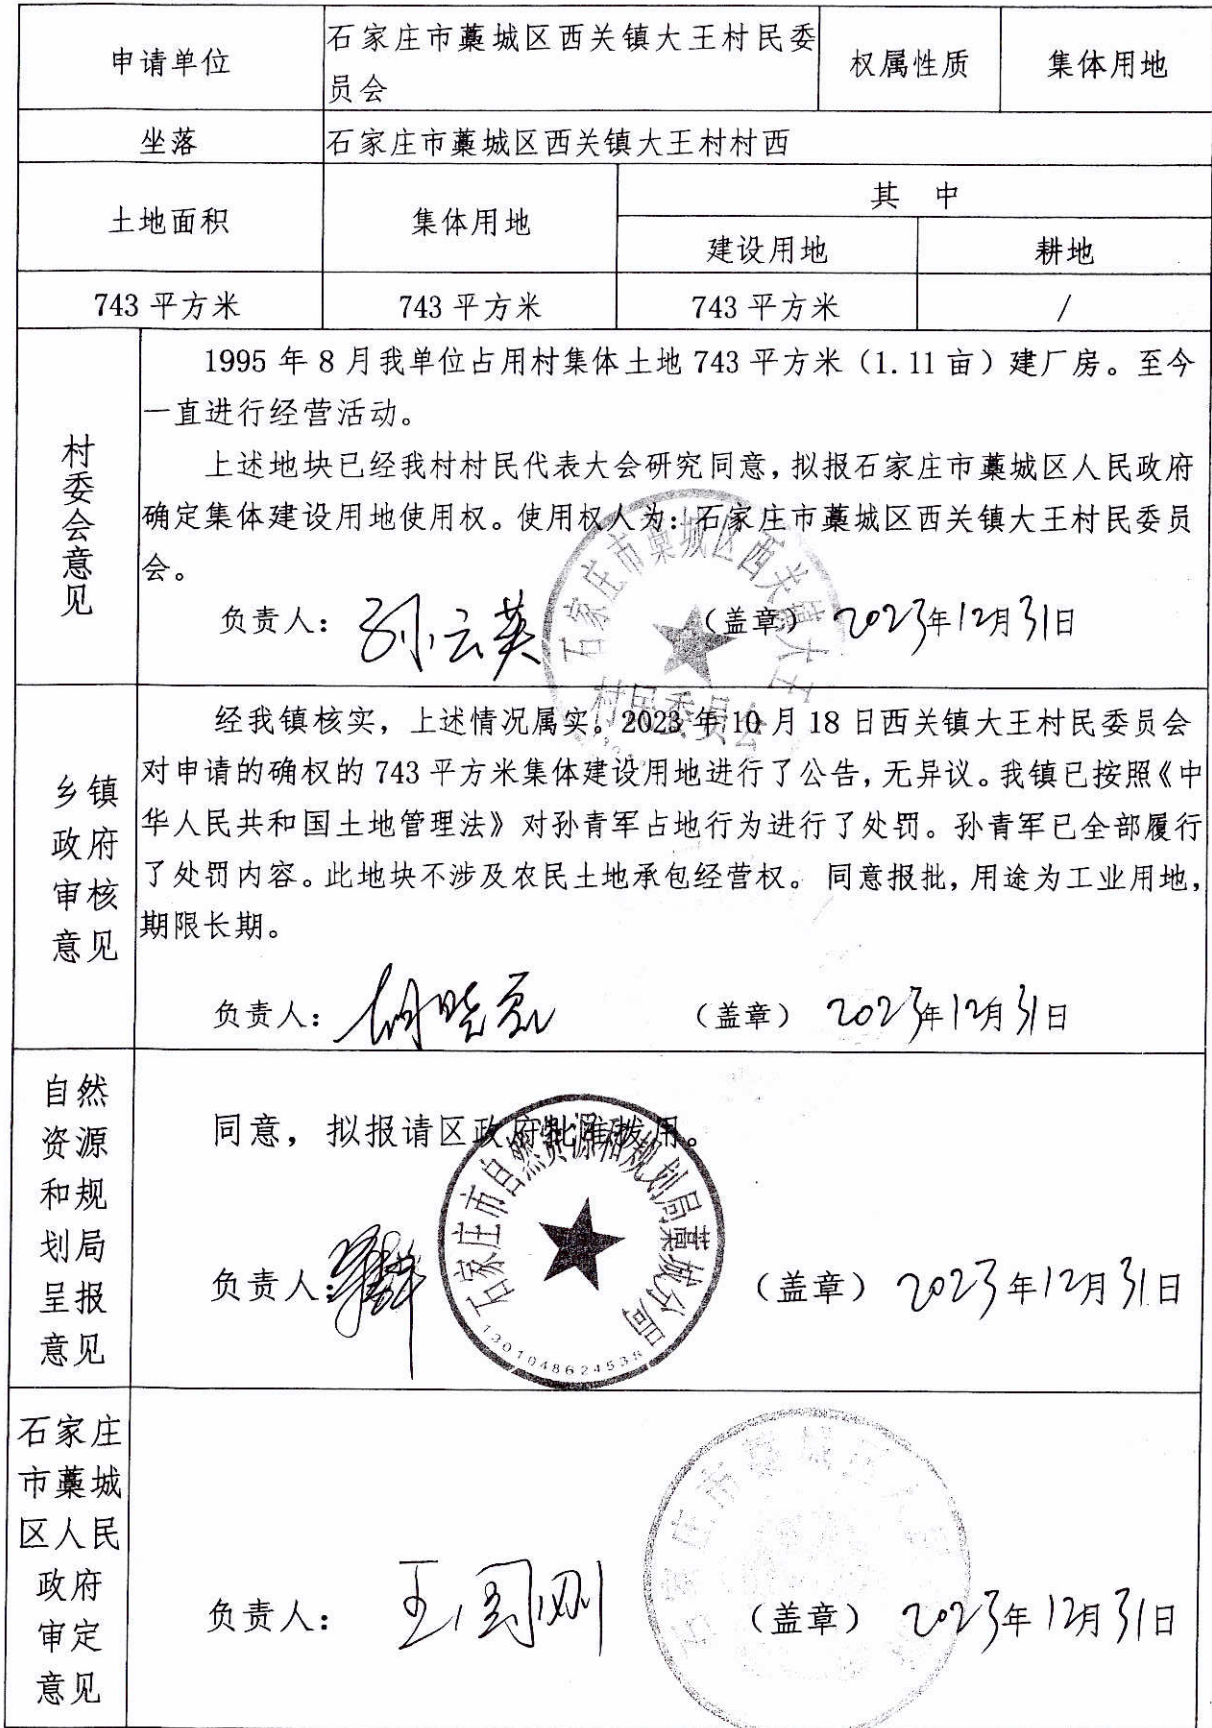 申请单位
石家庄市藁城区西关镇大王村民委
员会
权属性质
集体用地
坐落
石家庄市藁城区西关镇大王村村西
土地面积
集体用地
其 中
建设用地
耕地
743 平方米
743 平方米
743 平方米
/
村委会意见
1995 年 8 月我单位占用村集体土地 743 平方米（1.11 亩）建厂房。至今
一直进行经营活动。
上述地块已经我村村民代表大会研究同意，拟报石家庄市藁城区人民政府
确定集体建设用地使用权。使用权人为：石家庄市藁城区西关镇大王村民委员
会。
负责人：孙云英 （盖章） 2023年12月31日
石家庄市藁城区西关镇大王
村民委员会
乡镇
政府
审核
意见
经我镇核实，上述情况属实。2023 年 10 月 18 日西关镇大王村民委员会
对申请的确权的 743 平方米集体建设用地进行了公告，无异议。我镇已按照《中
华人民共和国土地管理法》对孙青军占地行为进行了处罚。孙青军已全部履行
了处罚内容。此地块不涉及农民土地承包经营权。 同意报批，用途为工业用地，
期限长期。
负责人： （盖章） 2023年12月31日
自然
资源
和规
划局
呈报
意见
同意，拟报请区政府批准拨用。
石家庄市自然资源和规划局藁城分局
1301048624538
负责人： （盖章） 2023年12月31日
石家庄
市藁城
区人民
政府
审定
意见
石家庄市藁城区人民
负责人：王国刚 （盖章） 2023年12月31日